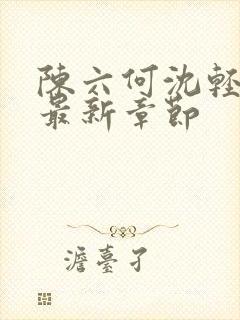 陳六何沈輕
最新章節
澹臺孑